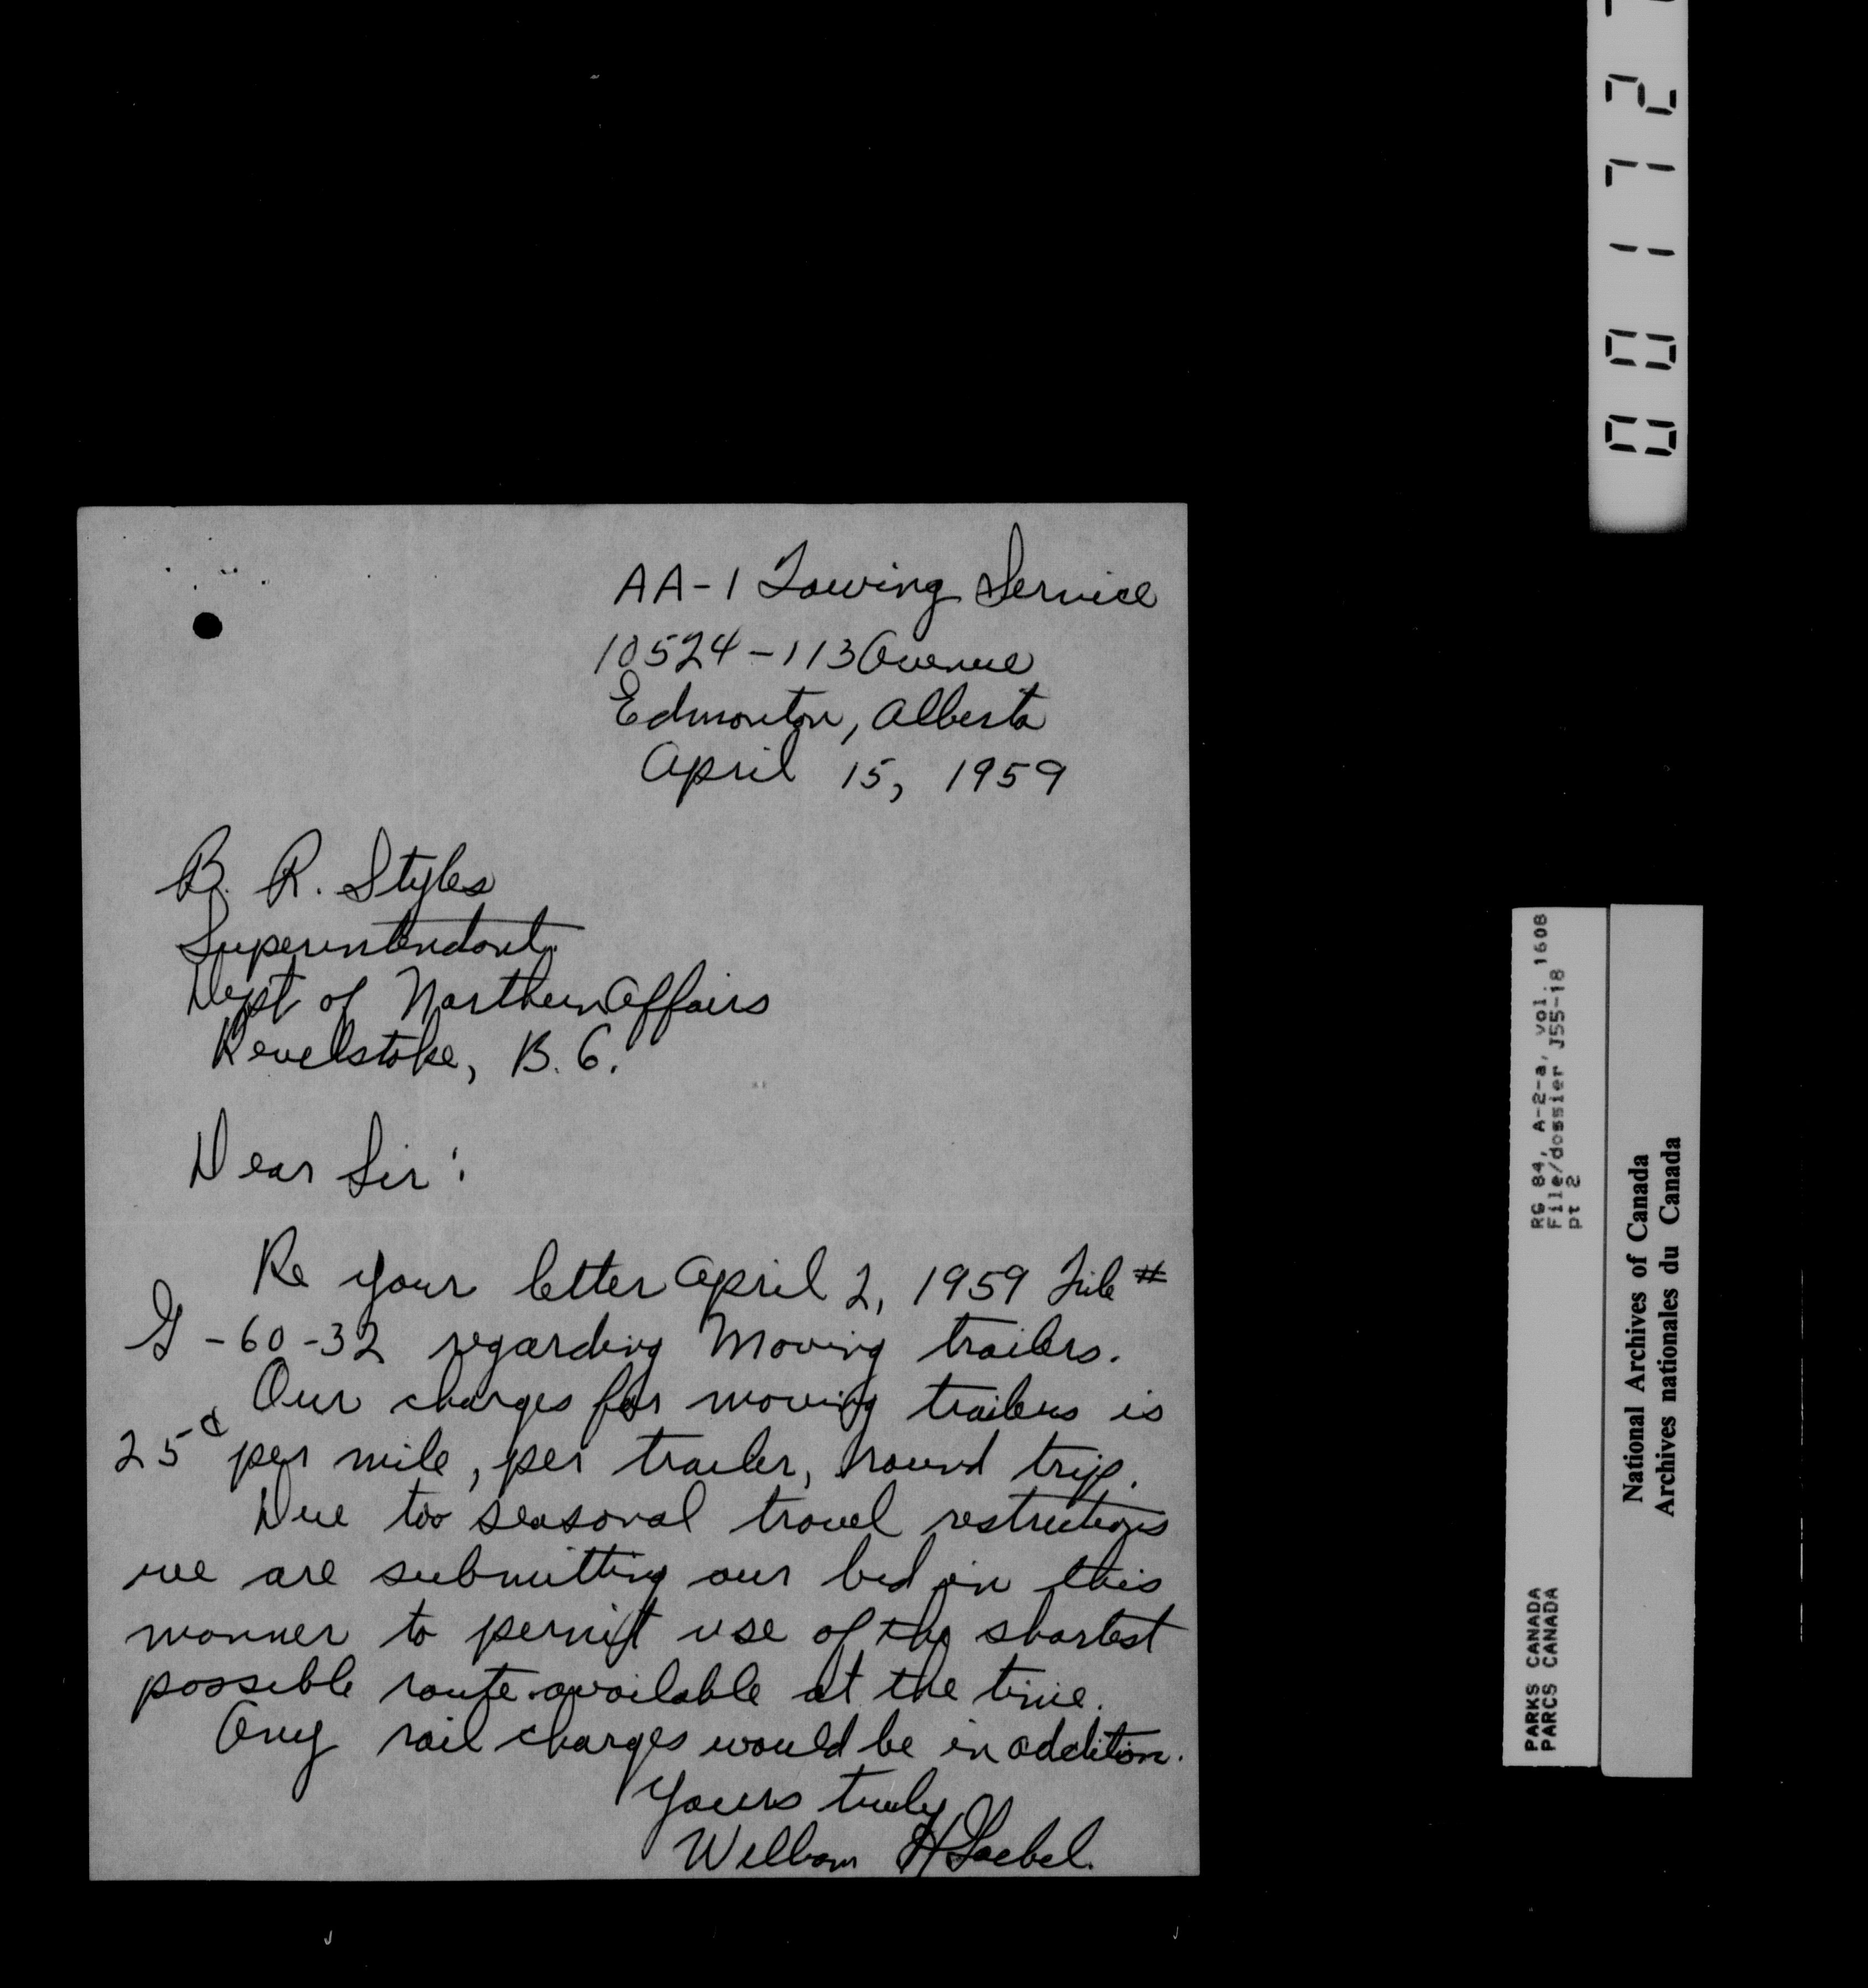 AA-1 Towing Service
10524-113 Avenue
Edmonton, Alberta
April 15, 1959
B. R. Styles
Superintendant
Dept of Northern Affairs
Revelstoke, B.C.
Dear Sir:
Re your letter April 2, 1959 File #
G-60-32 regarding Moving trailers.
Our charges for moving trailers is
25¢ per mile, per trailer, round trip.
Due too seasonal travel restrictions
we are submitting our bid in this
manner to permit use of the shortest
possible route available at the time.
Any rail charges would be in addition.
Yours truly
William H
RG 84, A-2-a, vol. 1608
File/dossier J55-18
pt 2
PARKS CANADA
PARCS CANADA
National Archives of Canada
Archives nationales du Canada